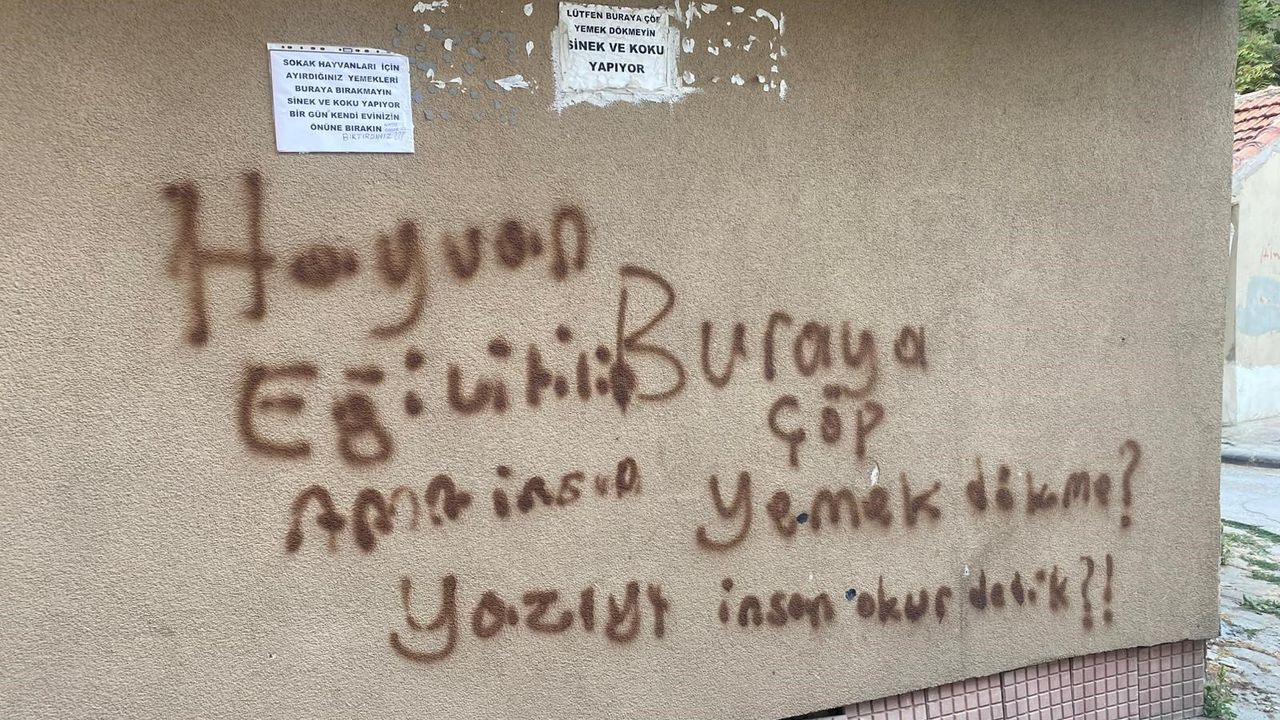 SOKAK HAYVANLARI İÇİN
AYIRDIĞINIZ YEMEKLERİ
BURAYA BIRAKMAYIN
SİNEK VE KOKU YAPIYOR
BİR GÜN KENDİ EVİNİZİN
ÖNÜNE BIRAKIN
BIKTIRDINIZ???
LÜTFEN BURAYA ÇÖP
YEMEK DÖKMEYİN
SİNEK VE KOKU
YAPIYOR
Hayvan
Eğitilir
Ama insan
Buraya
Çöp
Yemek dökme?
Yazıyı insan okur dedik?!